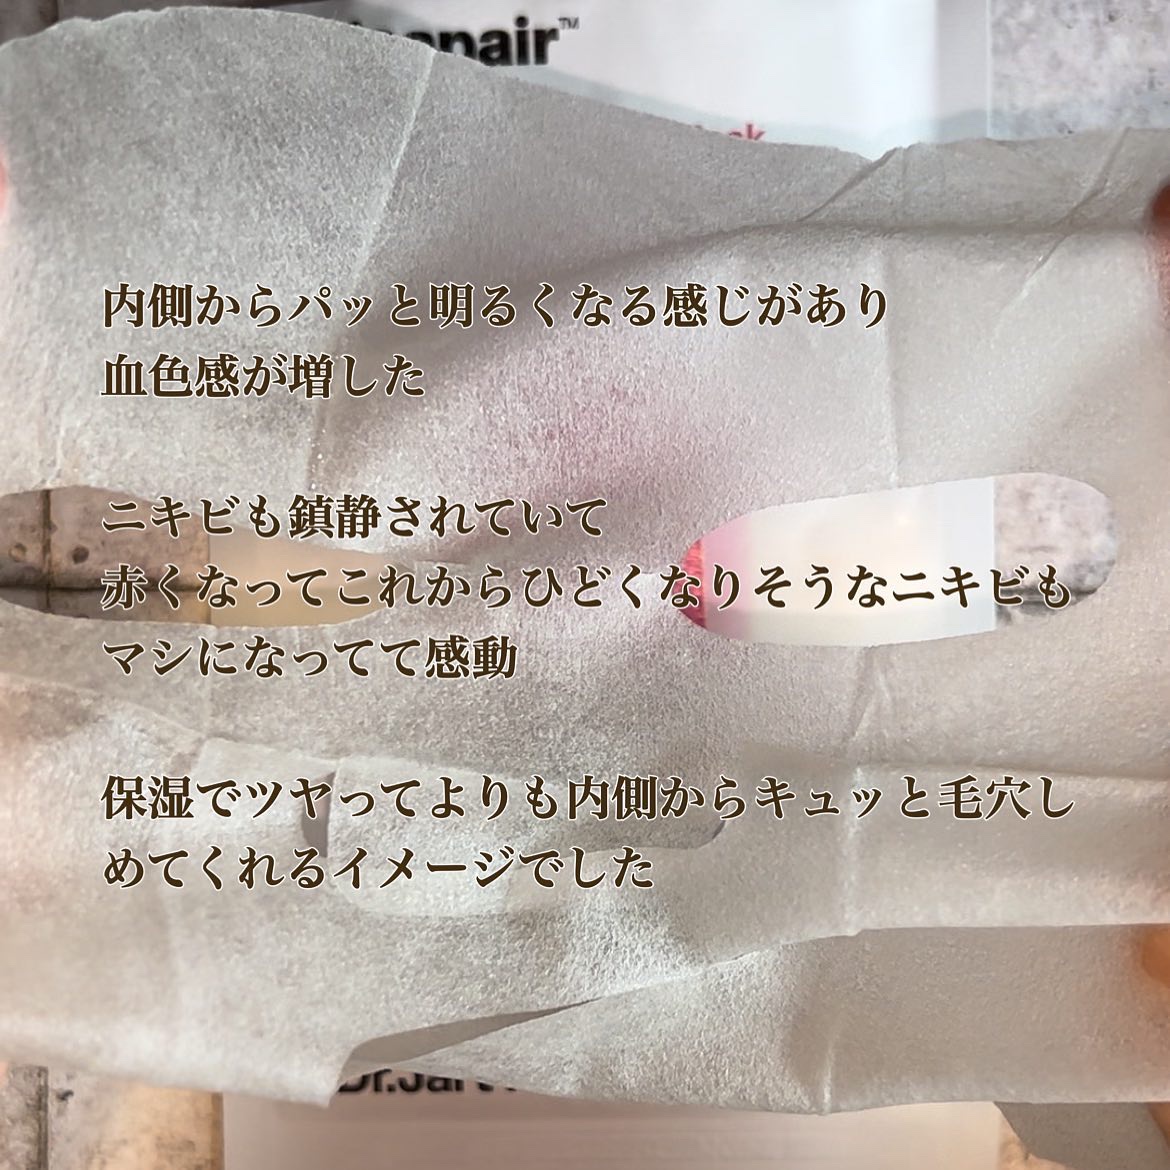 内側からパッと明るくなる感じがあり
血色感が増した
ニキビも鎮静されていて
赤くなってこれからひどくなりそうなニキビも
マシになってて感動
保湿でツヤってよりも内側からキュッと毛穴し
めてくれるイメージでした